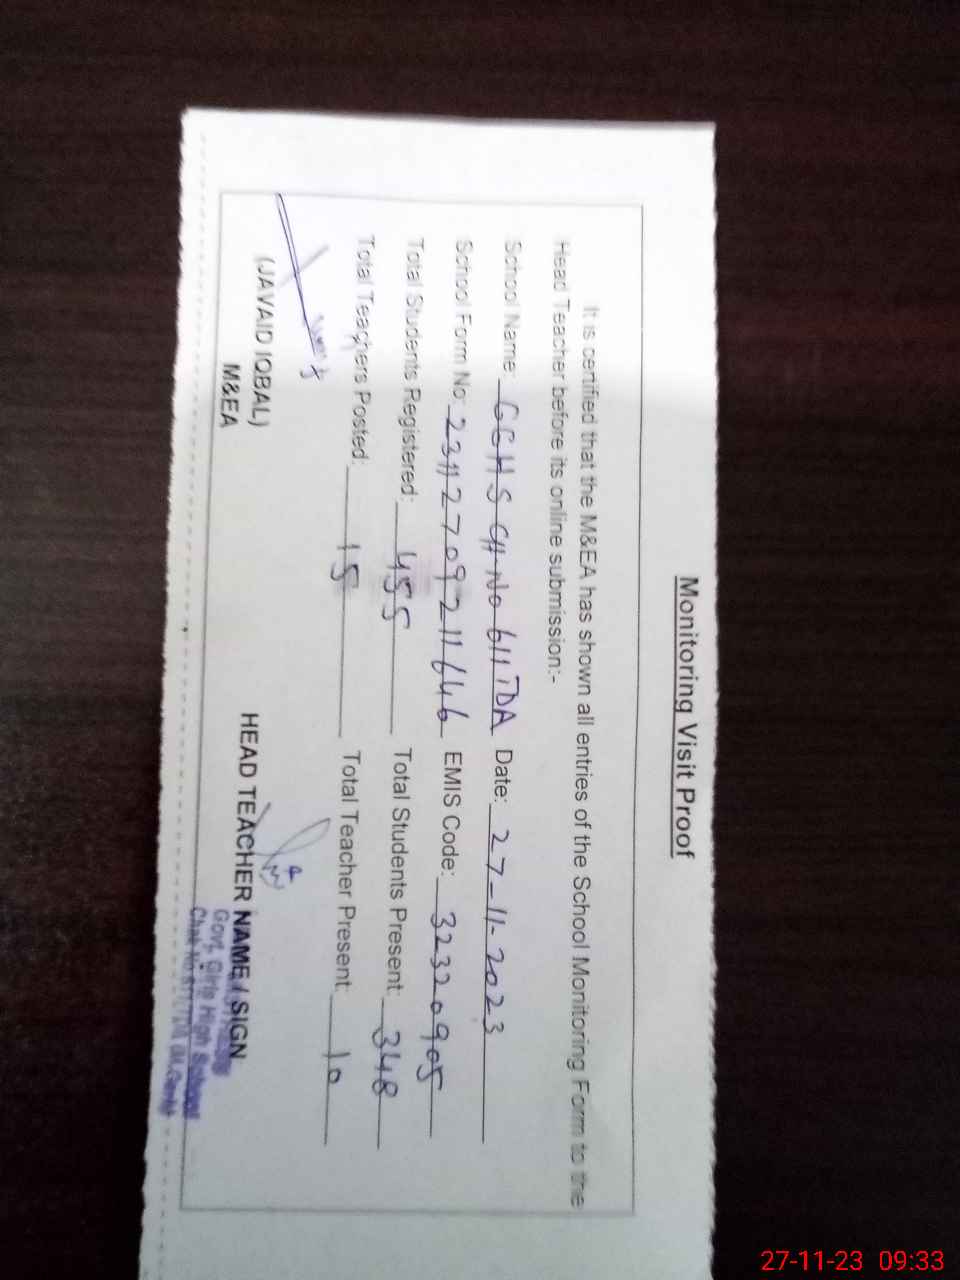 Monitoring Visit Proof
It is certified that the M&EA has shown all entries of the School Monitoring Form to the
Head Teacher before its online submission:-
School Name: GGHS CH No 611 TDA Date: 27-11-2023
School Form No: 23112709211646 EMIS Code: 32320905
Total Students Registered: 455 Total Students Present: 348
Total Teachers Posted: 15 Total Teacher Present: 10
(JAVAID IQBAL)
M&EA
HEAD TEACHER NAME / SIGN
Govt. Girls High School
Chak No.
27-11-23 09:33